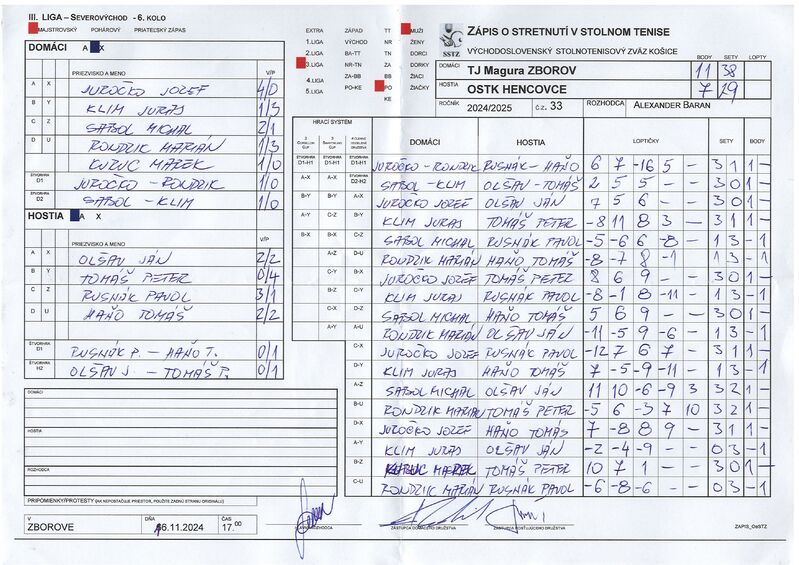 III. LIGA – SEVEROVÝCHOD - 6. KOLO
MAJSTROVSKÝ POHÁROVÝ PRIATEĽSKÝ ZÁPAS
DOMÁCI A X
PRIEZVISKO A MENO V/P
A X JUROČKO JOZEF 4/0
B Y KLIM JURAJ 1/3
C Z SABOL MICHAL 2/1
D U RONDZIK MARIÁN 1/3
KURUC MAREK 1/0
ŠTVORHRA D1 JUROČKO - RONDZIK 1/0
ŠTVORHRA D2 SABOL - KLIM 1/0
HOSTIA A X
PRIEZVISKO A MENO V/P
A X OLŠAV JÁN 2/2
B Y TOMÁŠ PETER 0/4
C Z RUSNÁK PAVOL 3/1
D U HAŇO TOMÁŠ 2/2
ŠTVORHRA H1 RUSNÁK P. - HAŇO T. 0/1
ŠTVORHRA H2 OLŠAV J. - TOMÁŠ P. 0/1
DOMÁCI
HOSTIA
ROZHODCA
PRIPOMIENKY/PROTESTY (AK NEPOSTAČUJE PRIESTOR, POUŽITE ZADNÚ STRANU ORIGINÁLU)
V ZBOROVE DŇA 16.11.2024 ČAS 17.00
EXTRA ZÁPAD TT MUŽI
1.LIGA VÝCHOD NR ŽENY
2.LIGA BA-TT TN DORCI
3.LIGA NR-TN ZA DORKY
4.LIGA ZA-BB BB ŽIACI
5.LIGA PO-KE PO ŽIAČKY
KE
SSTZ
ZÁPIS O STRETNUTÍ V STOLNOM TENISE
VÝCHODOSLOVENSKÝ STOLNOTENISOVÝ ZVÄZ KOŠICE
BODY SETY LOPTY
DOMÁCI TJ Magura ZBOROV 11 38
HOSTIA OSTK HENCOVCE 7 29
ROČNÍK 2024/2025 č.z. 33 ROZHODCA ALEXANDER BARAN
HRACÍ SYSTÉM
DOMÁCI HOSTIA LOPTIČKY SETY BODY
JUROČKO - RONDZIK RUSNÁK - HAŇO 6 7 -16 5 - 3 1 1 -
SABOL - KLIM OLŠAV - TOMÁŠ 2 5 5 - - 3 0 1 -
JUROČKO JOZEF OLŠAV JÁN 7 5 6 - - 3 0 1 -
KLIM JURAJ TOMÁŠ PETER -8 11 8 3 - 3 1 1 -
SABOL MICHAL RUSNÁK PAVOL -5 -6 6 -8 - 1 3 - 1
RONDZIK MARIÁN HAŇO TOMÁŠ -8 -7 8 -1 1 3 - 1
JUROČKO JOZEF TOMÁŠ PETER 8 6 9 - - 3 0 1 -
KLIM JURAJ RUSNÁK PAVOL -8 -1 8 -11 - 1 3 - 1
SABOL MICHAL HAŇO TOMÁŠ 5 6 9 - - 3 0 1 -
RONDZIK MARIÁN OLŠAV JÁN -11 -5 9 -6 - 1 3 - 1
JUROČKO JOZEF RUSNÁK PAVOL -12 7 6 7 - 3 1 1 -
KLIM JURAJ HAŇO TOMÁŠ 7 -5 -9 -11 - 1 3 - 1
SABOL MICHAL OLŠAV JÁN 11 10 -6 -9 3 3 2 1 -
RONDZIK MARIÁN TOMÁŠ PETER -5 6 -3 7 10 3 2 1 -
JUROČKO JOZEF HAŇO TOMÁŠ 7 -8 8 9 - 3 1 1 -
KLIM JURAJ OLŠAV JÁN -2 -4 -9 - - 0 3 - 1
KURUC MAREK TOMÁŠ PETER 10 7 1 - - 3 0 1 -
RONDZIK MARIÁN RUSNÁK PAVOL -6 -8 -6 - - 0 3 - 1
ZÁSTUPCA DOMÁCEHO DRUŽSTVA ZÁSTUPCA HOSŤUJÚCEHO DRUŽSTVA ZAPIS_OeSTZ